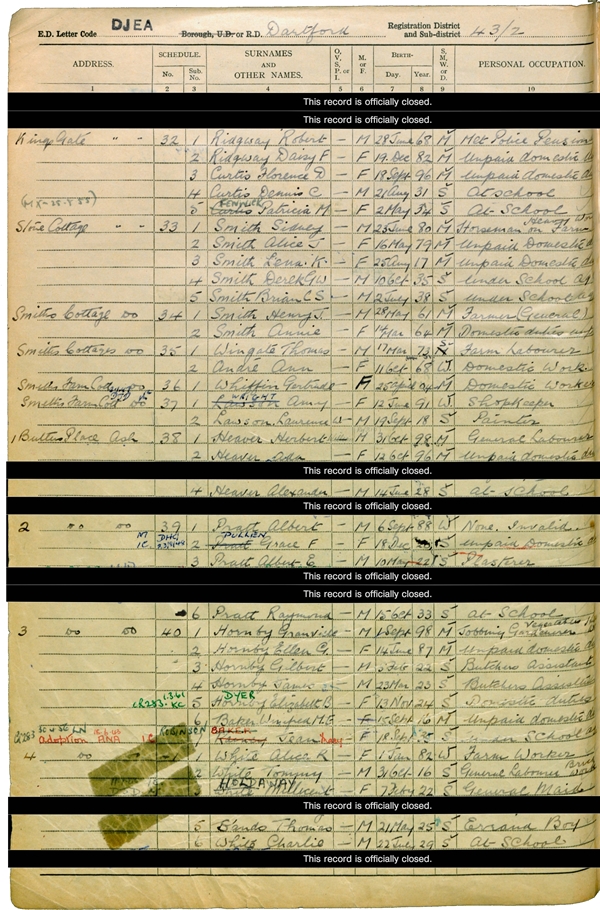 E.D. Letter Code DJEA Borough, U.D. or R.D. Dartford Registration District and Sub-district 43/2
ADDRESS. SCHEDULE. SURNAMES AND OTHER NAMES. O, V, S, P, or I M. or F. BIRTH- S, M, W, or D. PERSONAL OCCUPATION.
No. Sub. No. Day. Year.
1 2 3 4 5 6 7 8 9 10
This record is officially closed.
This record is officially closed.
Kings Gate " " 32 1 Ridgway Robert – M 29 June 68 M Met Police Pension
2 Ridgway Daisy F – F 19 Dec 82 M Unpaid domestic
3 Curtis Florence D – F 18 Sept 96 M Unpaid domestic
4 Curtis Dennis C – M 21 Aug 31 S At school
5 Curtis FENWICK Patricia M – F 2 May 34 S At School
Stone Cottage " " 33 1 Smith Sidney – M 23 June 80 M Horseman on Farm Heavy Work
2 Smith Alice J – F 16 May 79 M Unpaid Domestic
3 Smith Lena K – F 25 Aug 17 M Unpaid Domestic
4 Smith Derek G W – M 10 Oct 35 S Under School Age
5 Smith Brian C S – M 2 July 38 S Under School
Smiths Cottage do 34 1 Smith Henry J – M 28 May 61 M Farmer (General)
2 Smith Annie – F 14 Mar 64 M Domestic duties
Smiths Cottages do 35 1 Wingate Thomas – M 17 Mar 73 S Farm Labourer
2 Andre Ann – F 11 Oct 68 W Domestic Work
Smiths Farm Cott do 36 1 Whiffin Gertrude – F 25 April 04 M Domestic worker
Smiths Farm Cott do 37 1 Lawson WRIGHT Amy – F 12 June 91 W Shopkeeper
2 Lawson Laurence W – M 19 Sept 18 S Painter
1 Butlers Place Ash 38 1 Heaver Herbert – M 31 Oct 98 M General Labourer
2 Heaver Ada – F 12 Oct 96 M Unpaid domestic
This record is officially closed.
4 Heaver Alexander – M 14 June 28 S At School
This record is officially closed.
2 do do 39 1 Pratt Albert – M 6 Sept 88 W None. Invalid
2 Pratt PULLEN Grace F – F 18 Dec S Unpaid Domestic
3 Pratt Albert E – M 10 May 22 S Plasterer
This record is officially closed.
This record is officially closed.
6 Pratt Raymond – M 15 Oct 33 S At School
3 do do 40 1 Hornby Granville – M 1 Sept 98 M Jobbing Gardener Vegetables
2 Hornby Ellen G. – F 14 June 87 M Unpaid domestic
3 Hornby Gilbert – M 3 Feb 22 S Butchers Assistant
4 Hornby James – M 23 Mar 23 S Butchers Assistant
5 Hornby DYER Elizabeth B – F 13 Nov 24 S Domestic duties
6 Baker Winifred M.E. – F 15 Sept 16 M Unpaid domestic
adoption ROBINSON BAKER Jean – F 18 Sept S Under School
4 do 1 White Alice R – F 1 Jan 82 W Farm Worker
2 White Tommy – M 31 Oct 16 S General Labourer
White HOLDAWAY Millicent – F 7 Feby 22 S General Maid
This record is officially closed.
5 Bands Thomas – M 21 May 25 S Errand Boy
6 White Charlie – M 22 July 29 S At School
This record is officially closed.